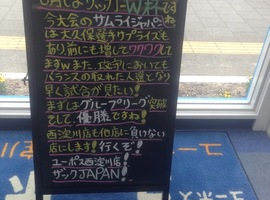 6月よりサッカーW杯ですね
今大会のサムライジャパン
は大久保選手サプライズも
あり前にも増してワクワクして
ますw また、攻守においても
バランスの取れた人選となり
早く試合が見たい!
まずはグループリーグ突破
そして、優勝ですね!
西淀川店も他店に負けない
店にします!行くぞ!
ユーポス西淀川店!
ザックJAPAN!